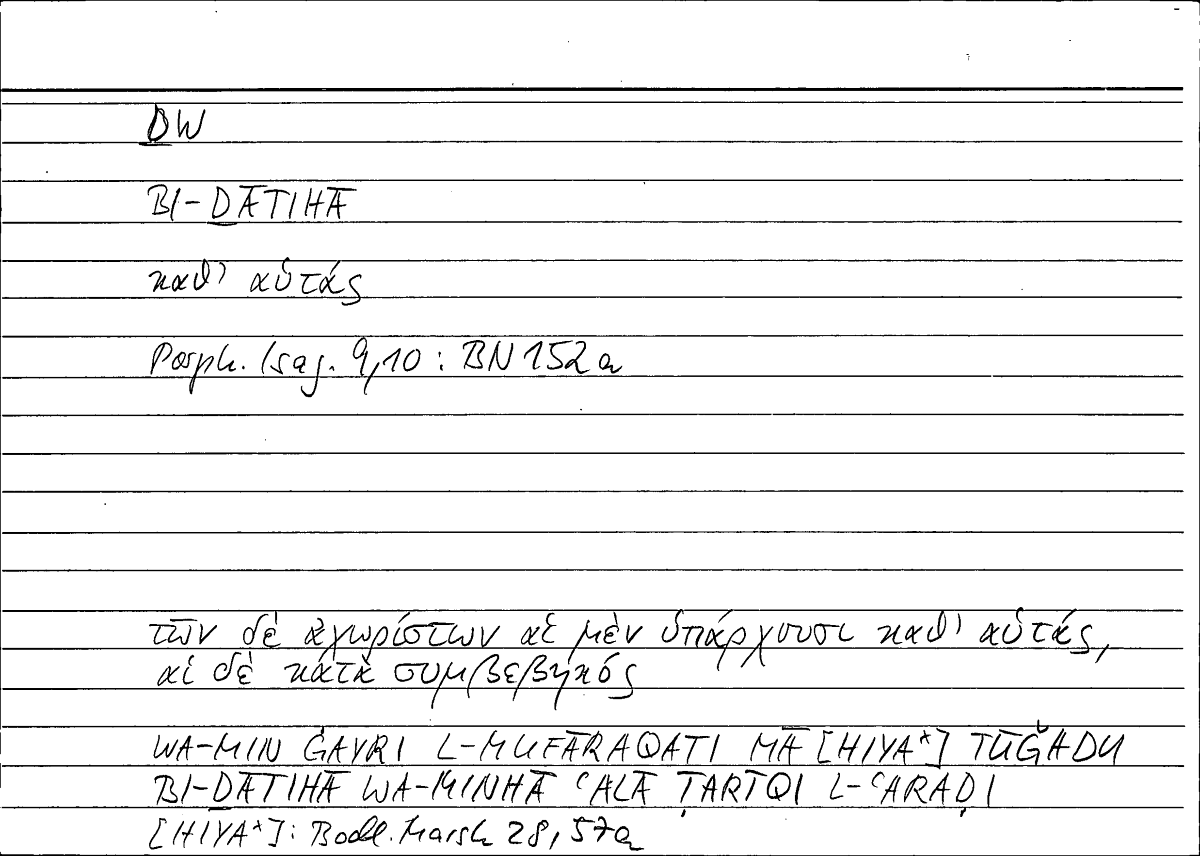 ḎW
BI-ḎĀTIHĀ
καθ' αὑτάς
Porph. Isag. 9,10 : BN 152 a
τῶν δὲ ἀχωρίστων αἱ μὲν ὑπάρχουσι καθ' αὑτάς,
αἱ δὲ κατὰ συμβεβηκός
WA-MIN ĠAYRI L-MUFĀRAQATI MĀ [HIYA*] TŪǦADU
BI-ḎĀTIHĀ WA-MINHĀ ʿALĀ ṬARĪQI L-ʿARAḌI
[HIYA*]: Bodl. Marsh 28, 57a